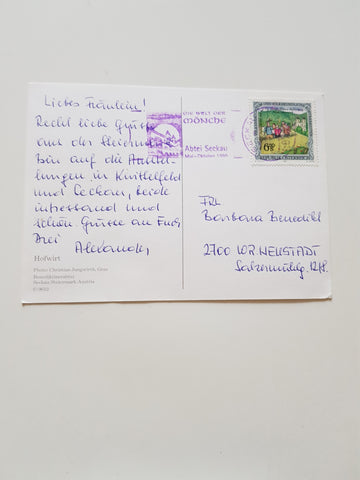 Liebes Fräulein!
Recht liebe Grüsse
aus der Steiermark
bin auf die
lungen in Knittelfeld
und Seckau, beide
interessant und
Grüsse an Euch
Drei
Alexander
Hofwirt
Photo: Christian Jungwirth, Graz
Benediktinerabtei
Seckau Steiermark Austria
DIE WELT DER
MÖNCHE
Abtei Seckau
Mai-Oktober
FRL
Barbara Benedikt
2700 WR. NEUSTADT